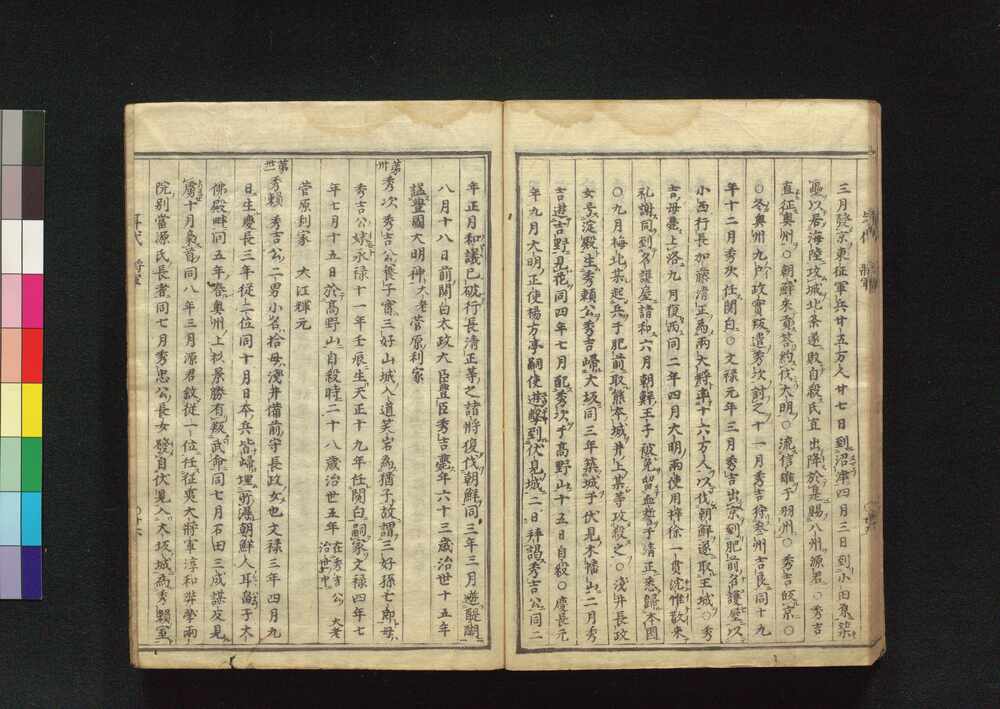 三月發京東征軍兵廿五万人廿七日到沼津四月三日到小田原築
壘以居海陸攻城北条遂敗自殺氏直出降於是賜八州源君○秀吉
直征奥州○朝鮮来貢答約伐大明○流信雄于羽州○秀吉皈京○
○冬奥州九戸政實叛遣秀次討之十一月秀吉狩参州吉良同十九
年十二月秀次任関白○文禄元年三月秀吉出京到肥前名護屋以
小西行長加藤清正為両大将率十六万人以伐朝鮮遂取王城○秀
吉母薨上洛九月復西同二年四月大明両使用梓徐一貫沈惟敬来
礼謝同到名護屋請和六月朝鮮王子清正悉歸本国
○九月梅北某起兵于肥前取熊本城井上某等攻殺之○浅井長政
女号淀殿生秀頼公秀吉歸大坂同三年築城于伏見木幡山二月秀
吉遊吉野見花同四年七月配秀次于高野山十五日自殺○慶長元
年九月大明正使楊方亨副使遊撃到伏見城二日拜謁秀吉公同二
年正月和議已破行長清正等之諸将復伐朝鮮同三年三月遊醍醐
八月十八日前関白太政大臣豊臣秀吉薨年六十三歳治世十五年
謚豊國大明神大老菅原利家
第卅秀次秀吉公養子實三好山城入道笑岩為猶子故謂三好孫七郎母
秀吉公姉永禄十一年壬辰生天正十九年任関白嗣家文禄四年七
年七月十五日於高野山自殺時二十八歳治世五年在秀吉公治世中大老
菅原利家大江輝元
第卅一秀頼秀吉公二男小名拾母浅井備前守長政女也文禄三年四月九
日生慶長三年従二位同十月日本兵皆歸埋所獲朝鮮人耳鼻于大
佛殿畔同五年春奥州上杦景勝有叛武命同七月石田三成謀反見
虜十月梟首同八年三月源君叙従一位任征夷大将軍淳和弉學両
院別當源氏長者同七月秀忠公長女發自伏見入大坂城為秀頼室